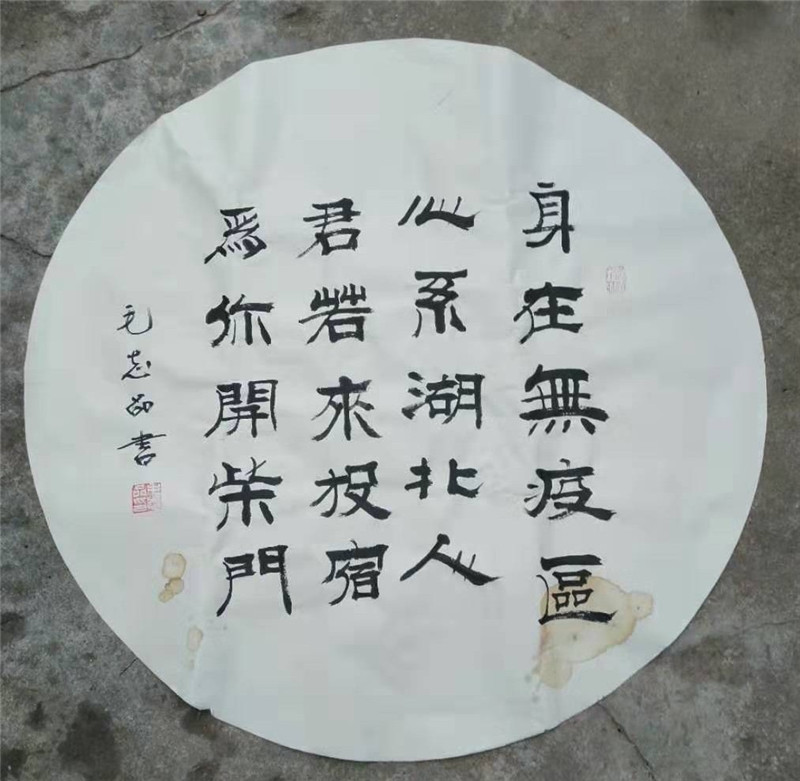 身在無疫區
心系湖北人
君若來投宿
爲你開柴門
毛志品書